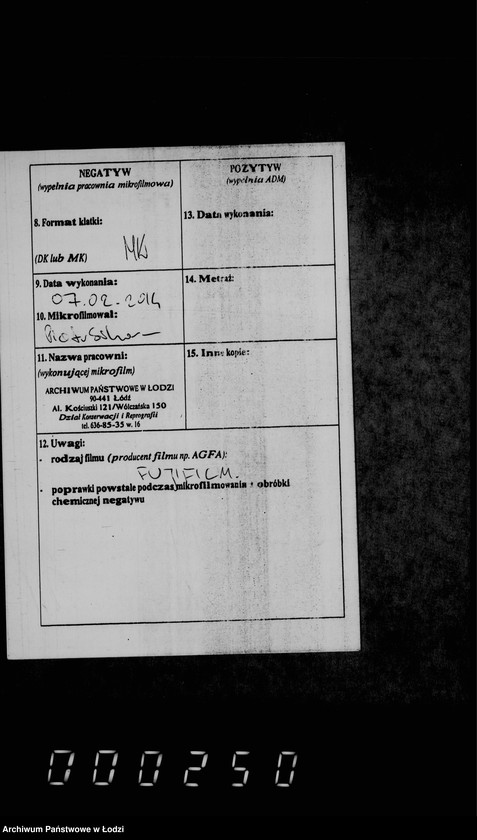 NEGATYW
(wypełnia pracownia mikrofilmowa)
8. Format klatki:
(DK lub MK) MK
9. Data wykonania:
07.02.2014
10. Mikrofilmował:
11. Nazwa pracowni:
(wykonującej mikrofilm)
ARCHIWUM PAŃSTWOWE W ŁODZI
90-441 Łódź
Al. Kościuszki 121/Wólczańska 150
Dział Konserwacji i Reprografii
tel. 636-85-35 w. 16
POZYTYW
(wypełnia ADM)
13. Data wykonania:
14. Metraż:
15. Inne kopie:
12. Uwagi:
- rodzaj filmu (producent filmu np. AGFA):
FUJIFILM.
- poprawki powstałe podczas mikrofilmowania i obróbki
chemicznej negatywu
000250
Archiwum Państwowe w Łodzi